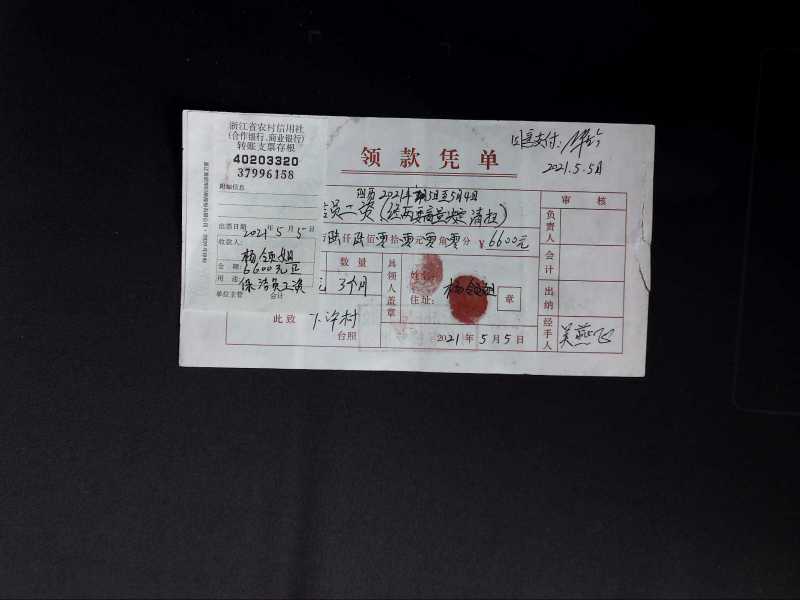 浙江省农村信用社
(合作银行、商业银行)
转账支票存根
40203320
37996158
附加信息
出票日期 2021年5月5日
收款人:
杨领姐
金额: 6600元正
用途: 保洁员工资
单位主管 会计
领款凭单
同意支付:
2021.5.5日
2021年 5月4日
员工资(经两委商量决定清扫)
陆仟陆佰零拾零元零角零分 ¥6600元
数量
3个月
具领人盖章
姓名: 杨领姐
住址:
章
此致 下许村
台照
2021年5月5日
审核
负责人
会计
出纳
经手人 吴燕飞